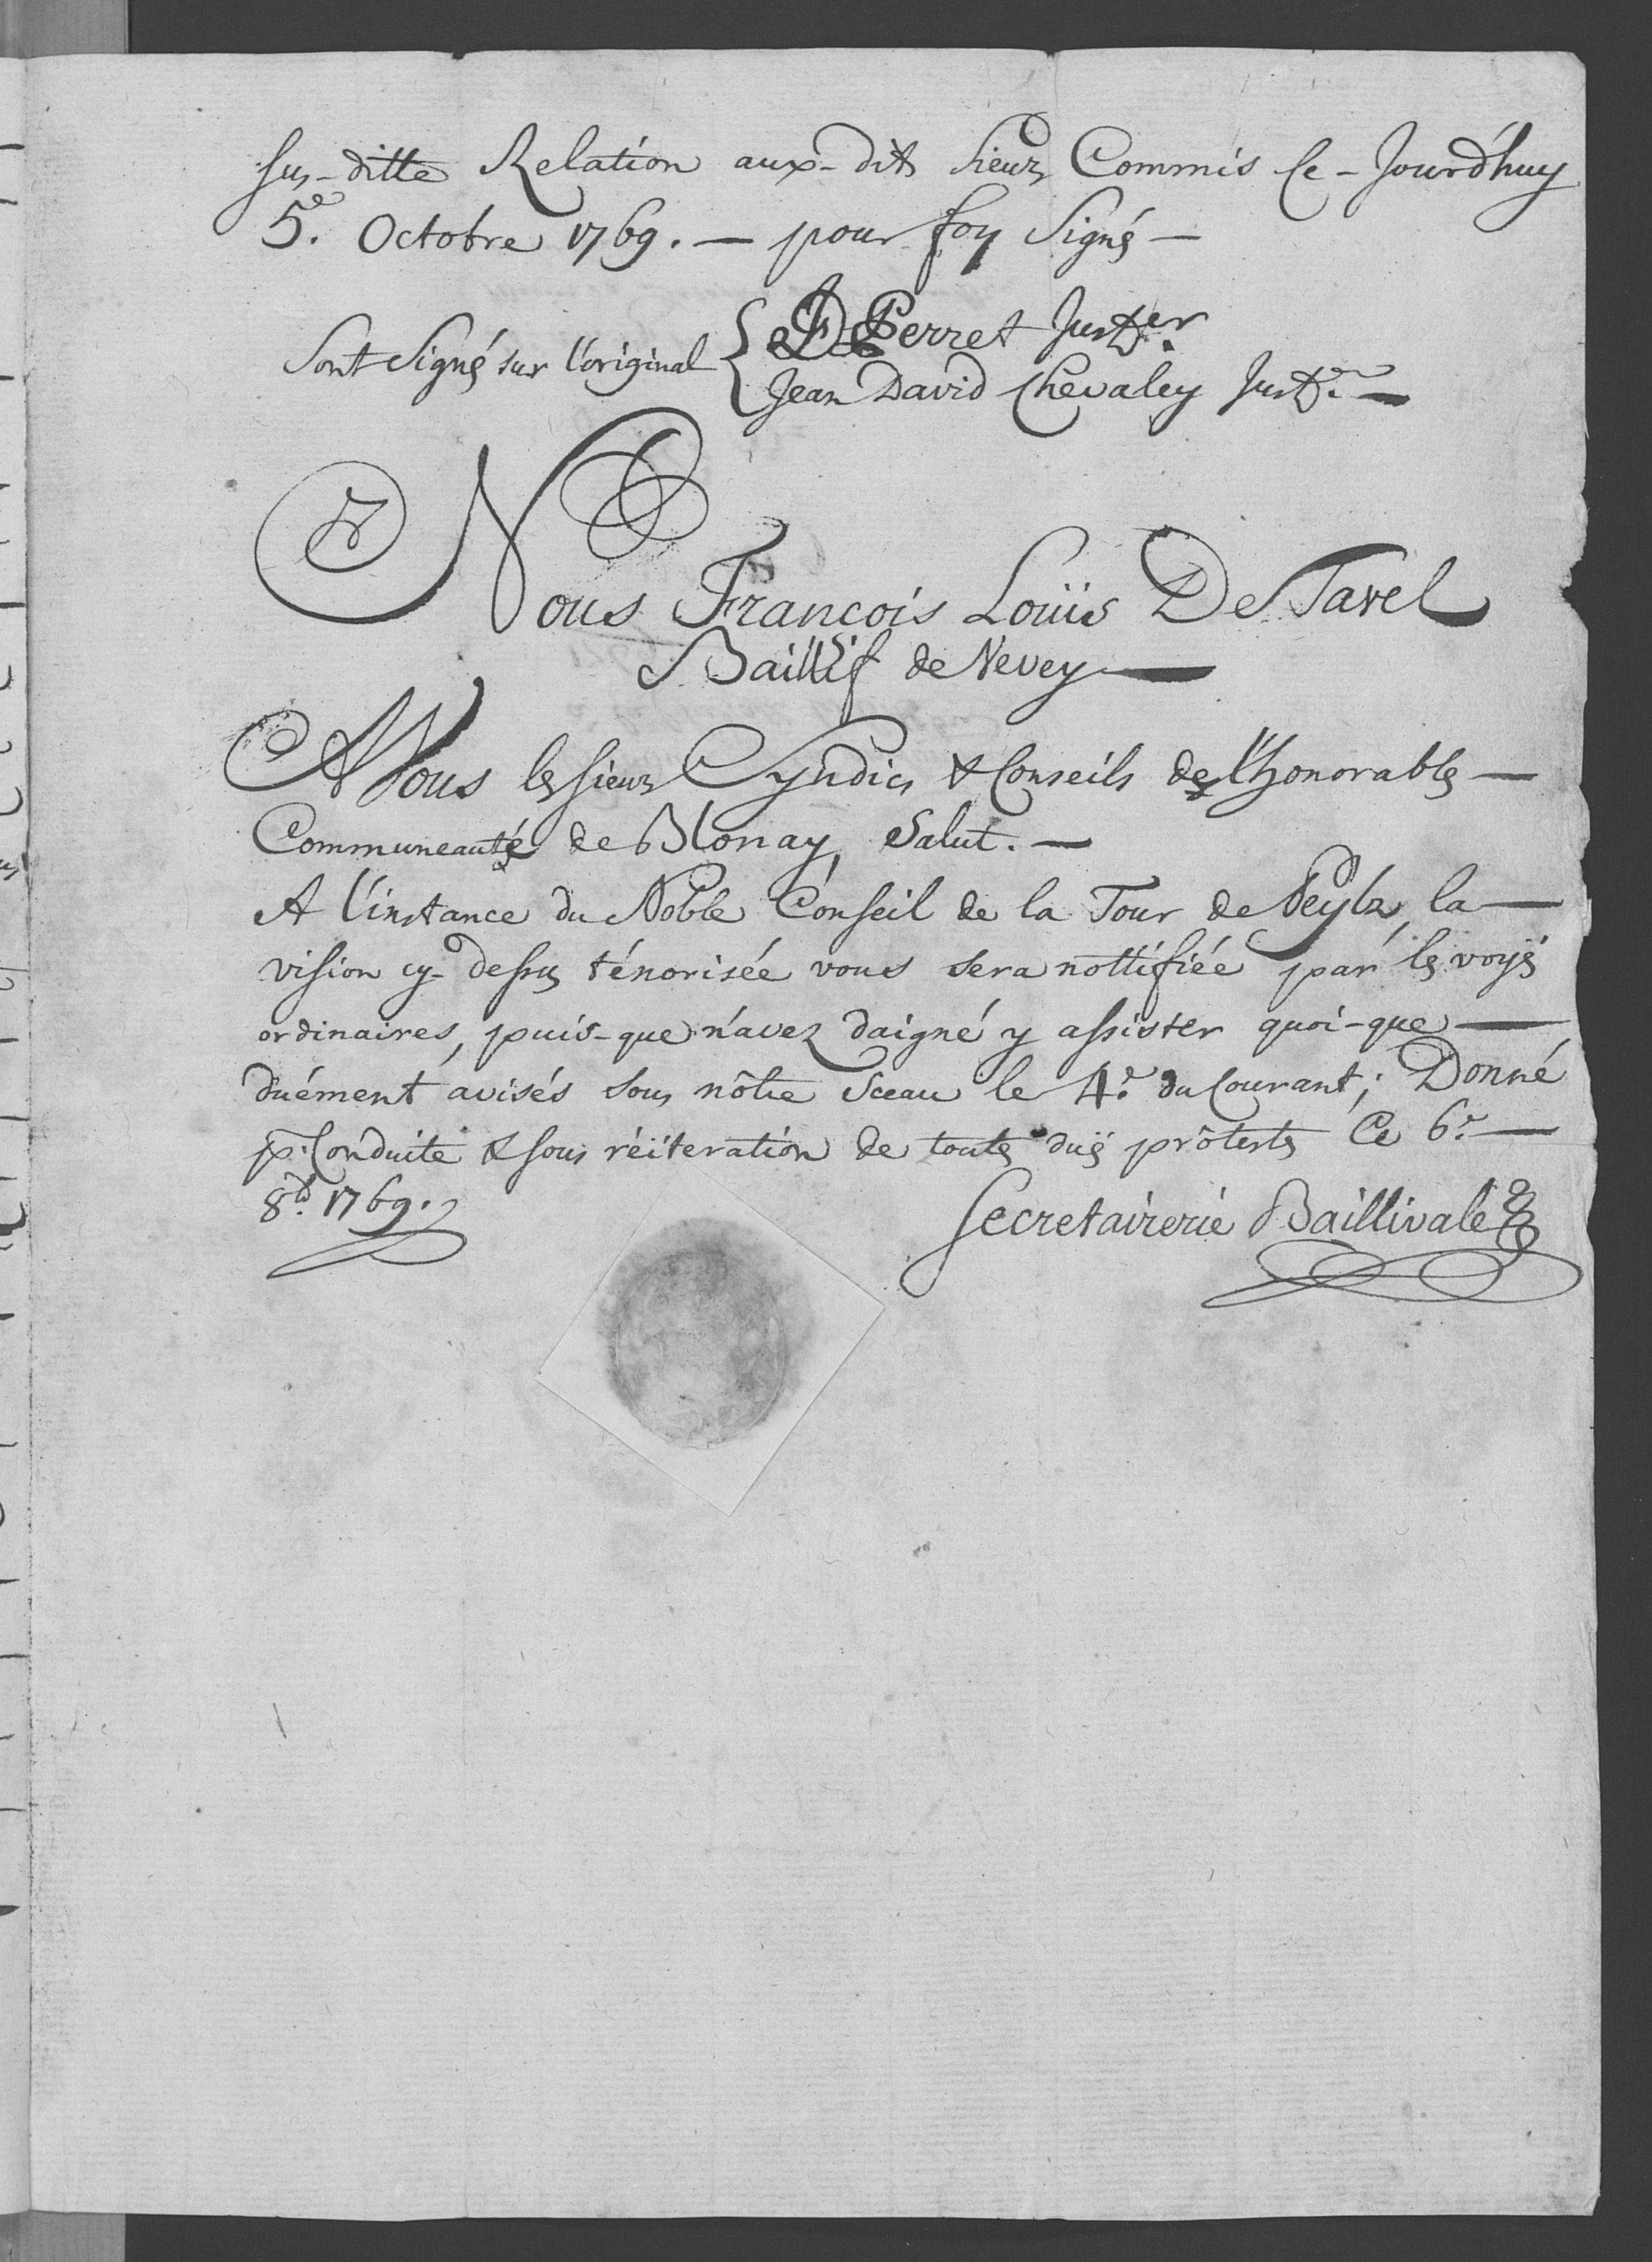 sus-ditte Relation aux-dits Sieurs Commis Ce-Jourd'huy
5.e Octobre 1769. — pour foy Signé —
Sont Signé sur l'original { Perret Just.er
Jean David Chevaley Just.r —
Nous François Loüis De Tavel
Baillif de Vevey —
A Vous les Sieurs Syndics & Conseils de l'honorable —
Communeauté de Blonay, Salut. —
A l'instance du Noble Conseil de la Tour de Peylz, la —
vision cy-dessus ténorisée vous sera nottifiée par les voyes
ordinaires, puis-que n'avez daigné y assister quoi-que —
duément avisés sous nôtre Sceau le 4.e du Courant; Donné
p.r Conduite & sous réiteration de toutes dues protestes Ce 6.e —
8.bre 1769.
Secretairerie Baillivale